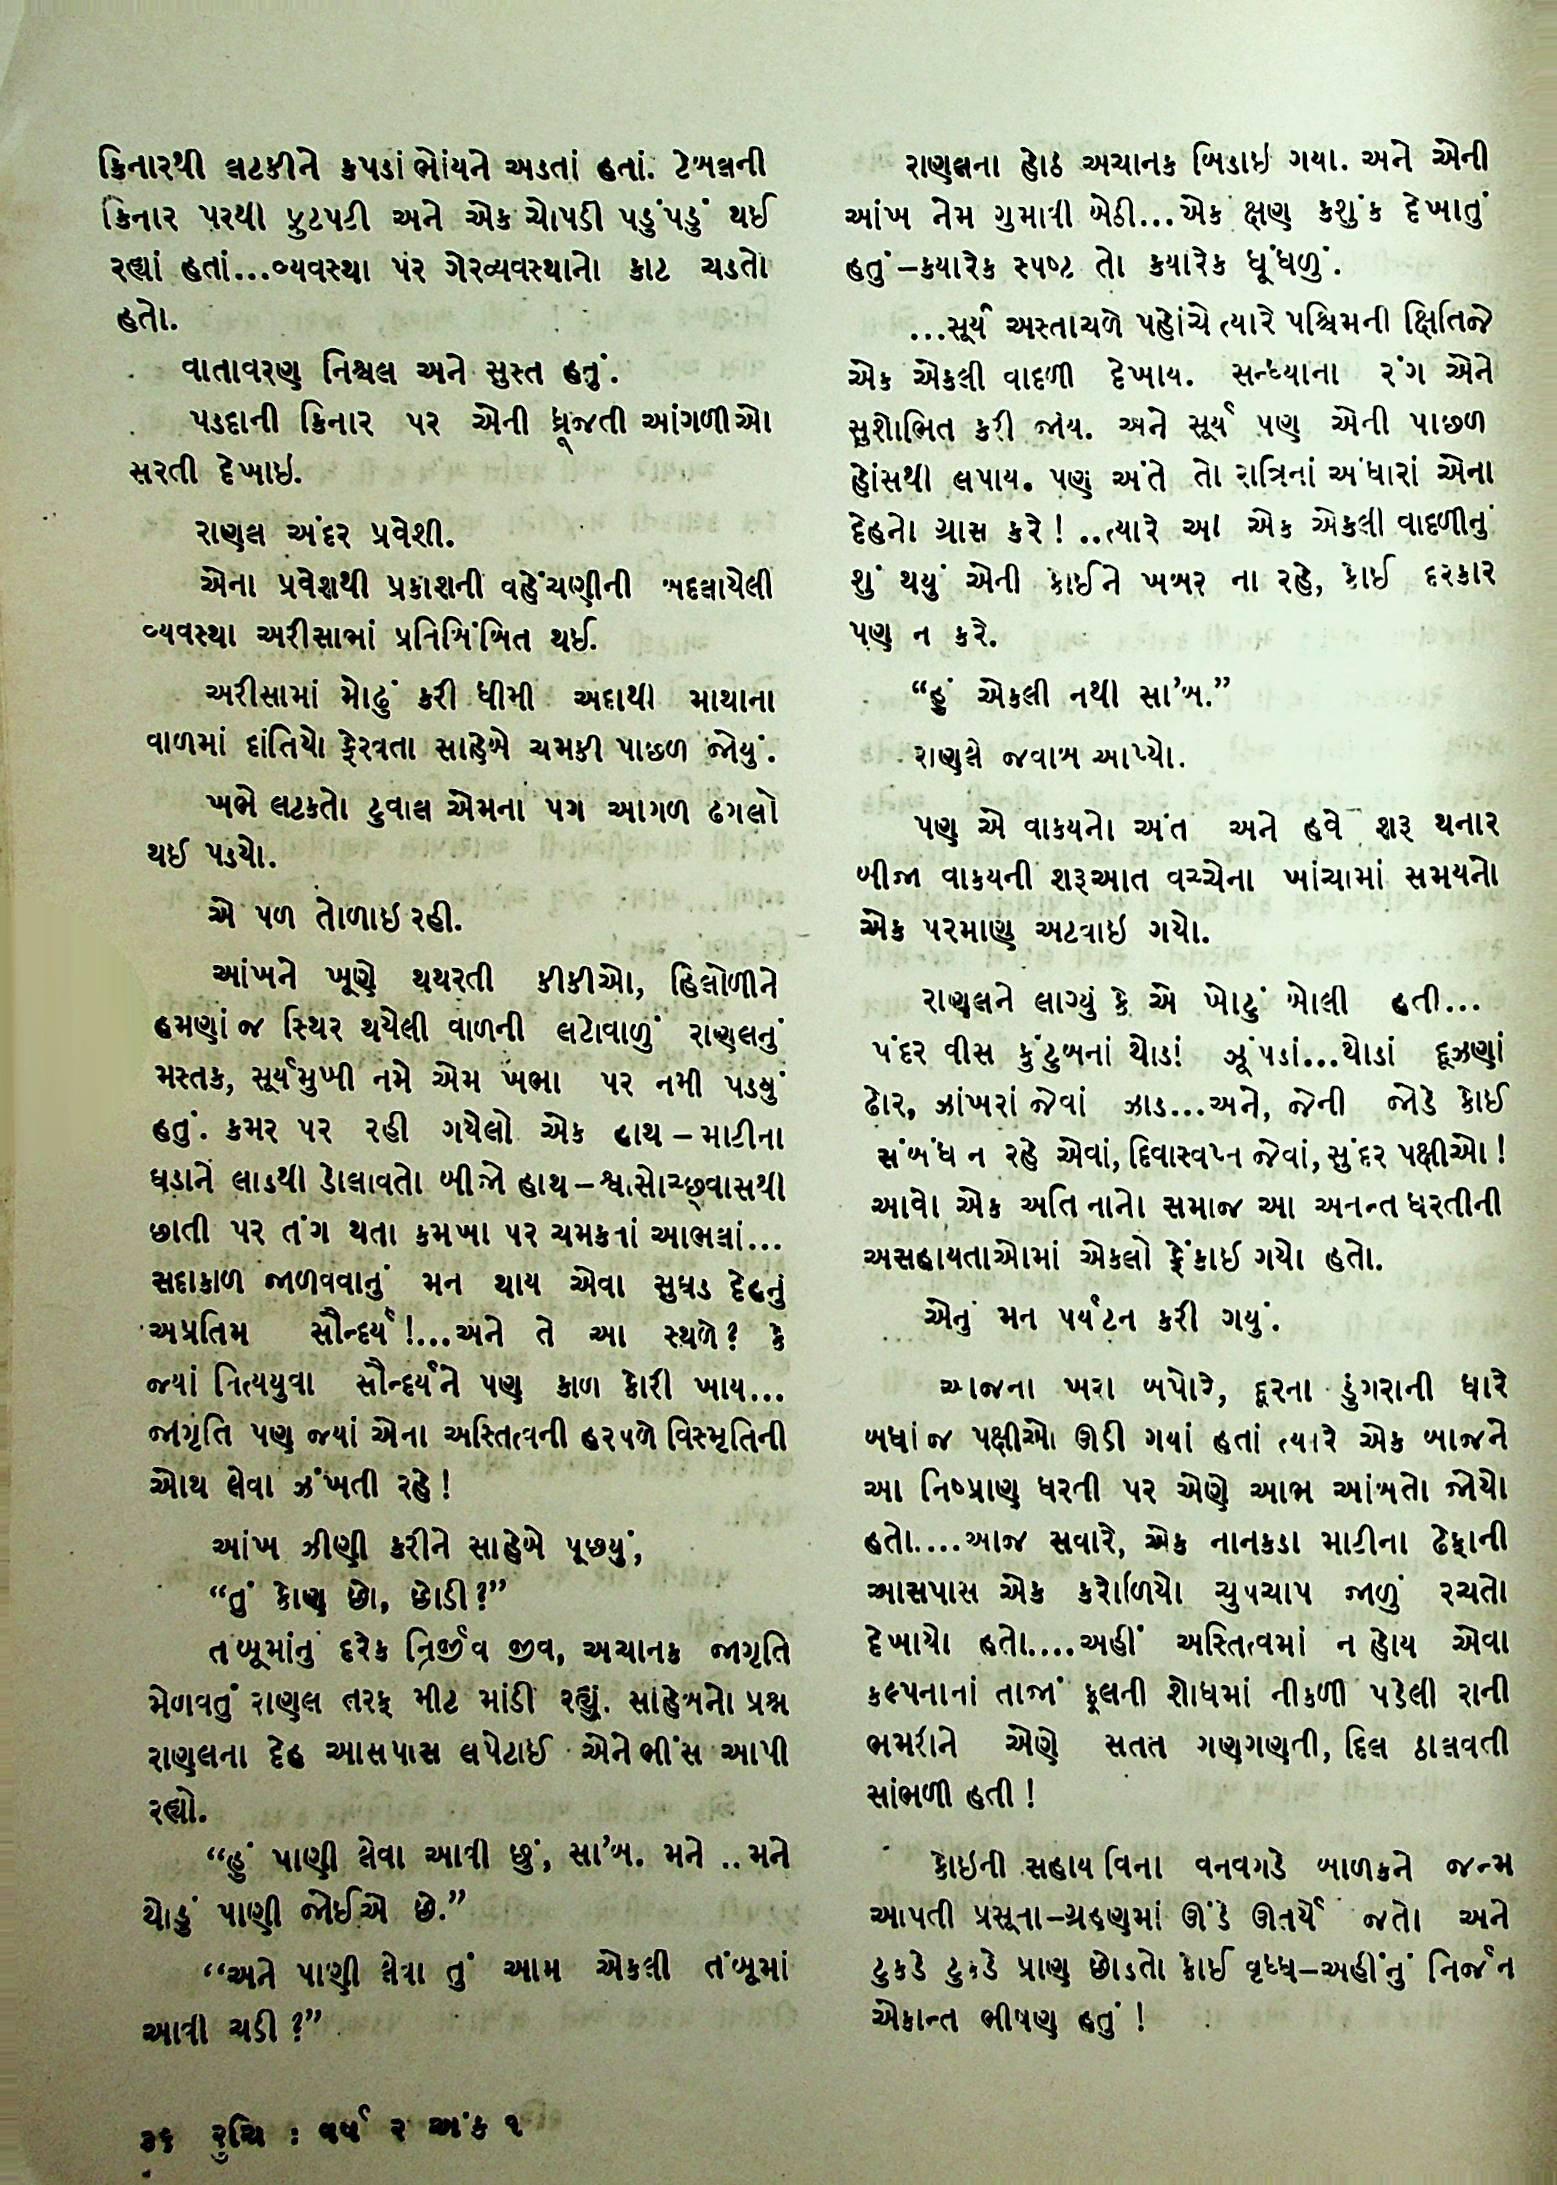 કિનારથી લટકીને કપડાં ભોંયને અડતાં હતાં. ટેબલની
કિનાર પરથી ફુટપટી અને એક ચોપડી પડુંપડું થઈ
રહ્યાં હતાં...વ્યવસ્થા પર ગેરવ્યવસ્થાનો કાટ ચડતો
હતો.
વાતાવરણ નિશ્ચલ અને સુસ્ત હતું.
પડદાની કિનાર પર એની ધ્રૂજતી આંગળીઓ
સરતી દેખાઇ.
રાણલ અંદર પ્રવેશી.
એના પ્રવેશથી પ્રકાશની વહેંચણીની બદલાયેલી
વ્યવસ્થા અરીસામાં પ્રતિબિંબિત થઈ.
અરીસામાં મોઢું કરી ધીમી અદાથી માથાના
વાળમાં દાંતિયો ફેરવતા સાહેબે ચમકી પાછળ જોયું.
ખભે લટકતો ટુવાલ એમના પગ આગળ ઢગલો
થઈ પડયો.
એ પળ તોળાઇ રહી.
આંખને ખૂણે થથરતી કીકીઓ, હિલોળીને
હમણાં જ સ્થિર થયેલી વાળની લટોવાળું રાણલનું
મસ્તક, સૂર્યમુખી નમે એમ ખભા પર નમી પડયું
હતું. કમર પર રહી ગયેલો એક હાથ – માટીના
ઘડાને લાડથી ડોલાવતો બીજો હાથ – શ્વાસોચ્છ્વાસથી
છાતી પર તંગ થતા કમખા પર ચમકતાં આભલાં...
સદાકાળ જાળવવાનું મન થાય એવા સુઘડ દેહનું
અપ્રતિમ સૌન્દર્ય!...અને તે આ સ્થળે? કે
જ્યાં નિત્યયુવા સૌન્દર્યને પણ કાળ કોરી ખાય...
જાગૃતિ પણ જ્યાં એના અસ્તિત્વની હરપળે વિસ્મૃતિની
ઓથ લેવા ઝંખતી રહે!
આંખ ઝીણી કરીને સાહેબે પૂછયું,
“તું કોણ છો, છોડી?”
તંબૂમાંનું દરેક નિર્જીવ જીવ, અચાનક જાગૃતિ
મેળવતું રાણલ તરફ મીટ માંડી રહ્યું. સાહેબનો પ્રશ્ન
રાણલના દેહ આસપાસ લપેટાઈ એને ભીંસ આપી
રહ્યો.
“હું પાણી લેવા આવી છું, સા’બ. મને ..મને
થોડું પાણી જોઈએ છે.”
“અને પાણી લેવા તું આમ એકલી તંબૂમાં
આવી ચડી?”
૩૬ રુચિ : વર્ષ ૨ અંક ૧
રાણલના હોઠ અચાનક બિડાઇ ગયા. અને એની
આંખ નેમ ગુમાવી બેઠી...એક ક્ષણ કશુંક દેખાતું
હતું – કયારેક સ્પષ્ટ તો કયારેક ધૂંધળું.
...સૂર્ય અસ્તાચળે પહોંચે ત્યારે પશ્ચિમની ક્ષિતિજે
એક એકલી વાદળી દેખાય. સન્ધ્યાના રંગ એને
સુશોભિત કરી જાય. અને સૂર્ય પણ એની પાછળ
હોંસથી લપાય. પણ અંતે તો રાત્રિનાં અંધારાં એના
દેહનો ગ્રાસ કરે! ..ત્યારે આ એક એકલી વાદળીનું
શું થયું એની કોઈને ખબર ના રહે, કોઈ દરકાર
પણ ન કરે.
“હું એકલી નથી સા’બ.”
રાણલે જવાબ આપ્યો.
પણ એ વાકયનો અંત અને હવે શરૂ થનાર
બીજા વાકયની શરૂઆત વચ્ચેના ખાંચામાં સમયનો
એક પરમાણુ અટવાઇ ગયો.
રાણલને લાગ્યું કે એ ખોટું બોલી હતી...
પંદર વીસ કુંટુબનાં થોડાં ઝૂંપડાં...થોડાં દૂઝણાં
ઢોર, ઝાંખરાં જેવાં ઝાડ...અને, જેની જોડે કોઈ
સંબંધ ન રહે એવાં, દિવાસ્વપ્ન જેવાં, સુંદર પક્ષીઓ!
આવો એક અતિ નાનો સમાજ આ અનન્ત ધરતીની
અસહાયતાઓમાં એકલો ફેંકાઈ ગયો હતો.
એનું મન પર્યટન કરી ગયું.
આજના ખરા બપોરે, દૂરના ડુંગરાની ધારે
બધાં જ પક્ષીઓ ઊડી ગયાં હતાં ત્યારે એક બાજને
આ નિષ્પ્રાણ ધરતી પર એણે આભ આંબતો જોયો
હતો....આજ સવારે, એક નાનકડા માટીના ઢેફાની
આસપાસ એક કરોળિયો ચુપચાપ જાળું રચતો
દેખાયો હતો....અહીં અસ્તિત્વમાં ન હોય એવા
કલ્પનાનાં તાજાં ફૂલની શોધમાં નીકળી પડેલી રાની
ભમરીને એણે સતત ગણગણતી, દિલ ઠાલવતી
સાંભળી હતી!
કોઇની સહાય વિના વનવગડે બાળકને જન્મ
આપતી પ્રસૂતા–ગ્રહણમાં ઊંડે ઊતર્યે જતો અને
ટુકડે ટુકડે પ્રાણ છોડતો કોઈ વૃધ્ધ–અહીંનું નિર્જન
એકાન્ત ભીષણ હતું!